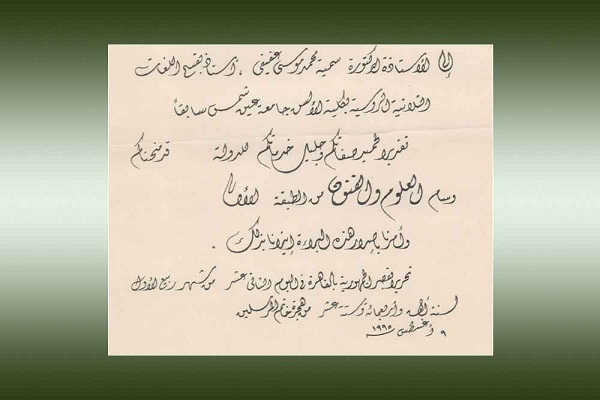 إلى الأستاذة الدكتورة سمية محمد موسى عفيفى ، أستاذ بقسم اللغات
السلافية الروسية بكلية الألسن جامعة عين شمس سابقاً
تقديراً لحميد صفاتكم وجليل خدماتكم للدولة قد منحناكم
وسام العلوم والفنون من الطبقة الأولى
وأمرنا بإصدار هذه البراءة إيذانا بذلك .
تحريراً بقصر الجمهورية بالقاهرة فى اليوم الثانى عشر من شهر ربيع الأول
لسنة ألف وأربعمائة وستة عشر من هجرة خاتم المرسلين
٩ أغسطس ١٩٩٥